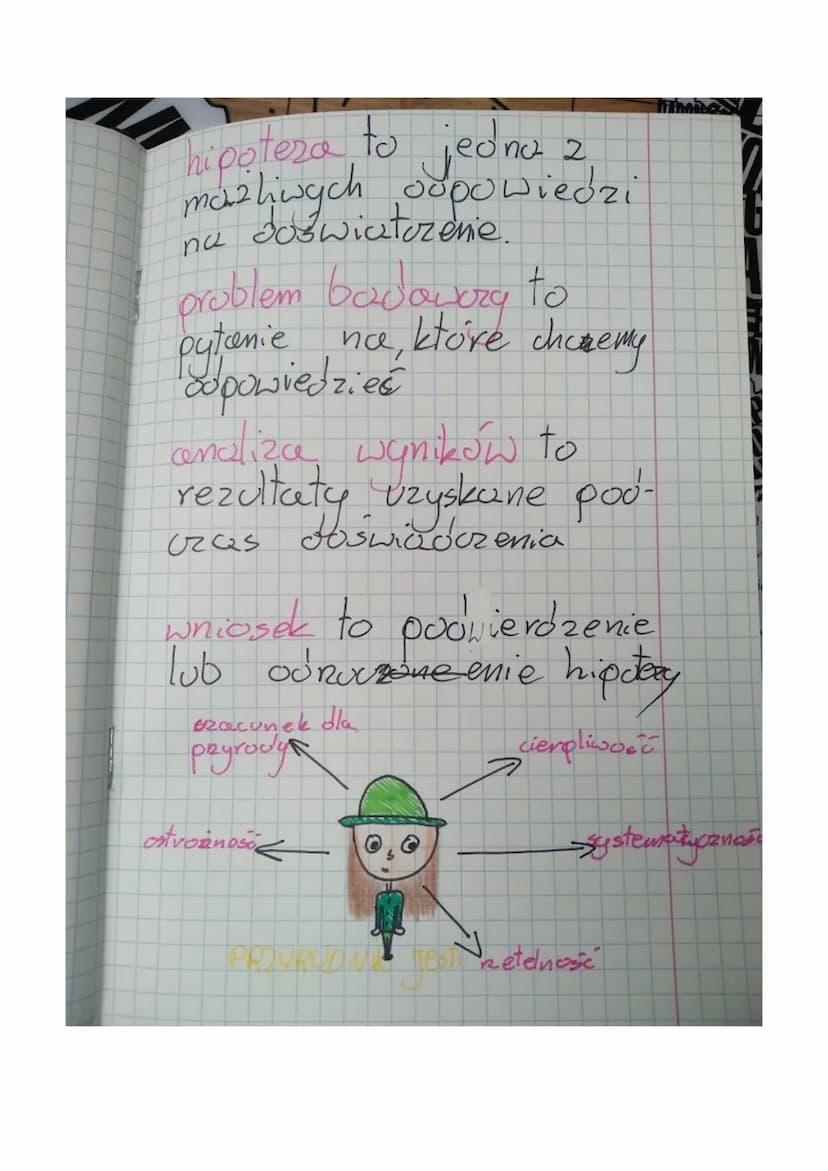 hipoteza to jedna z
możliwych odpowiedzi
na doświatczenie.
problem badawczy to
pytanie na, które chcemy
odpowiedzieć
analiza wyników to
rezultaty uzyskane pod-
czas doświadczenia
wniosek to podwierdzenie
lub odrzucenie hipotezy
szacunek dla
przyrody
cierpliwość
ostrożność
systematyczność
PRZYRODNIK jest:
rzetelność